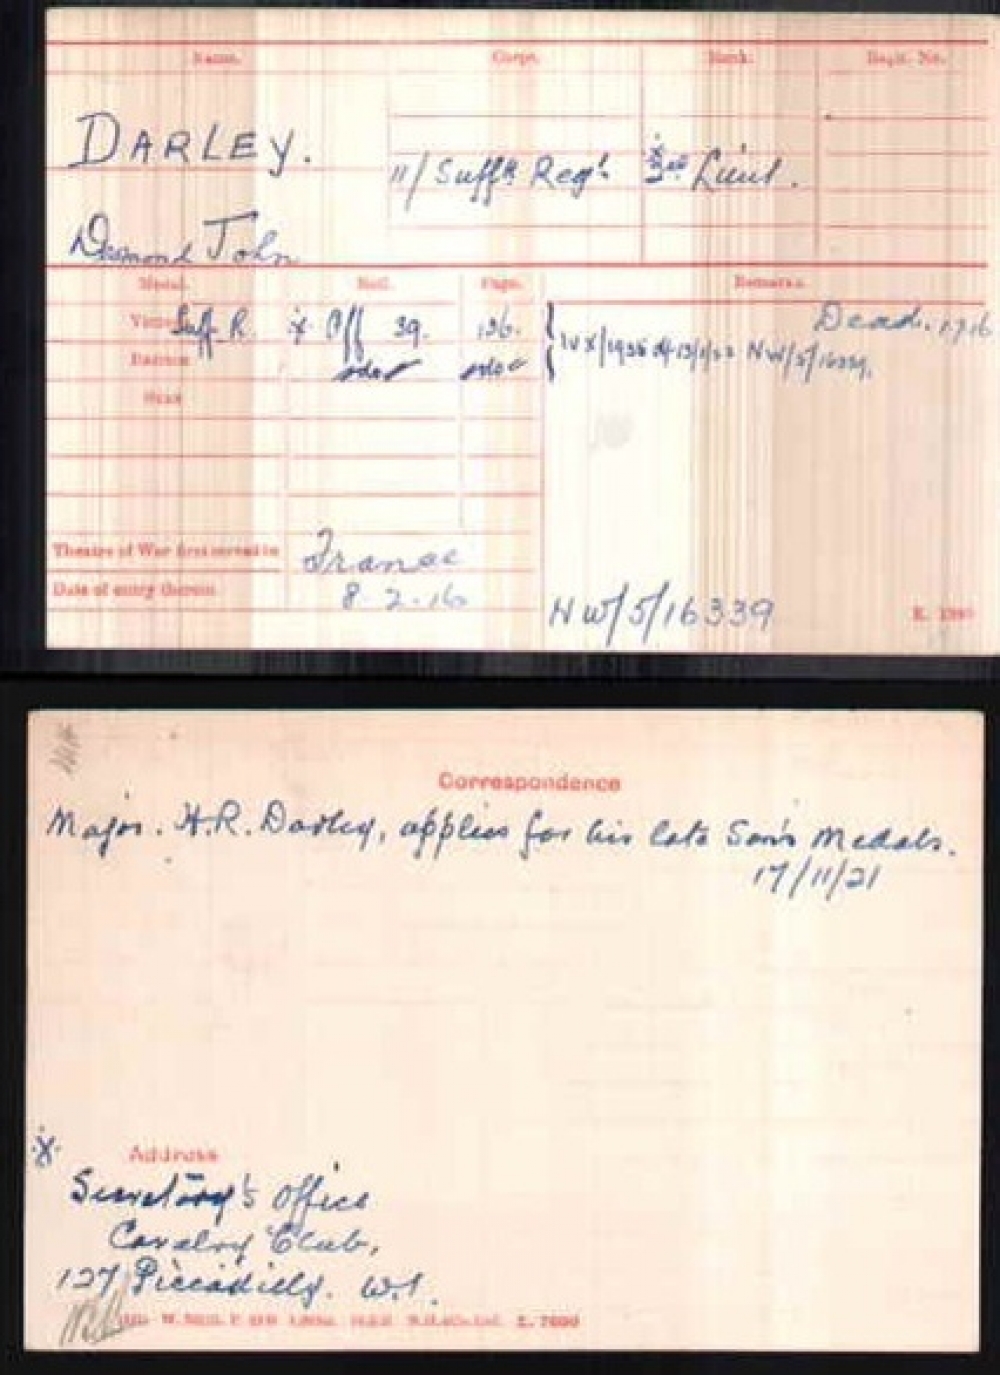 Name. Corps. Rank. Regtl. No.
DARLEY. 11/ Suff k Regt. 2nd Lieut.
Desmond John
Medal. Roll. Page. Remarks.
Victory Suff. R. Off 39. 136. Dead.
British
Star
Theatre of War first served in France
Date of entry therein 8.2.16
NW/5/16339
Correspondence
Major. H.R. Darley, applies for his late Son's Medals.
17/11/21
Address
Secretary's Office
Cavalry Club,
127 Piccadilly. W.1.